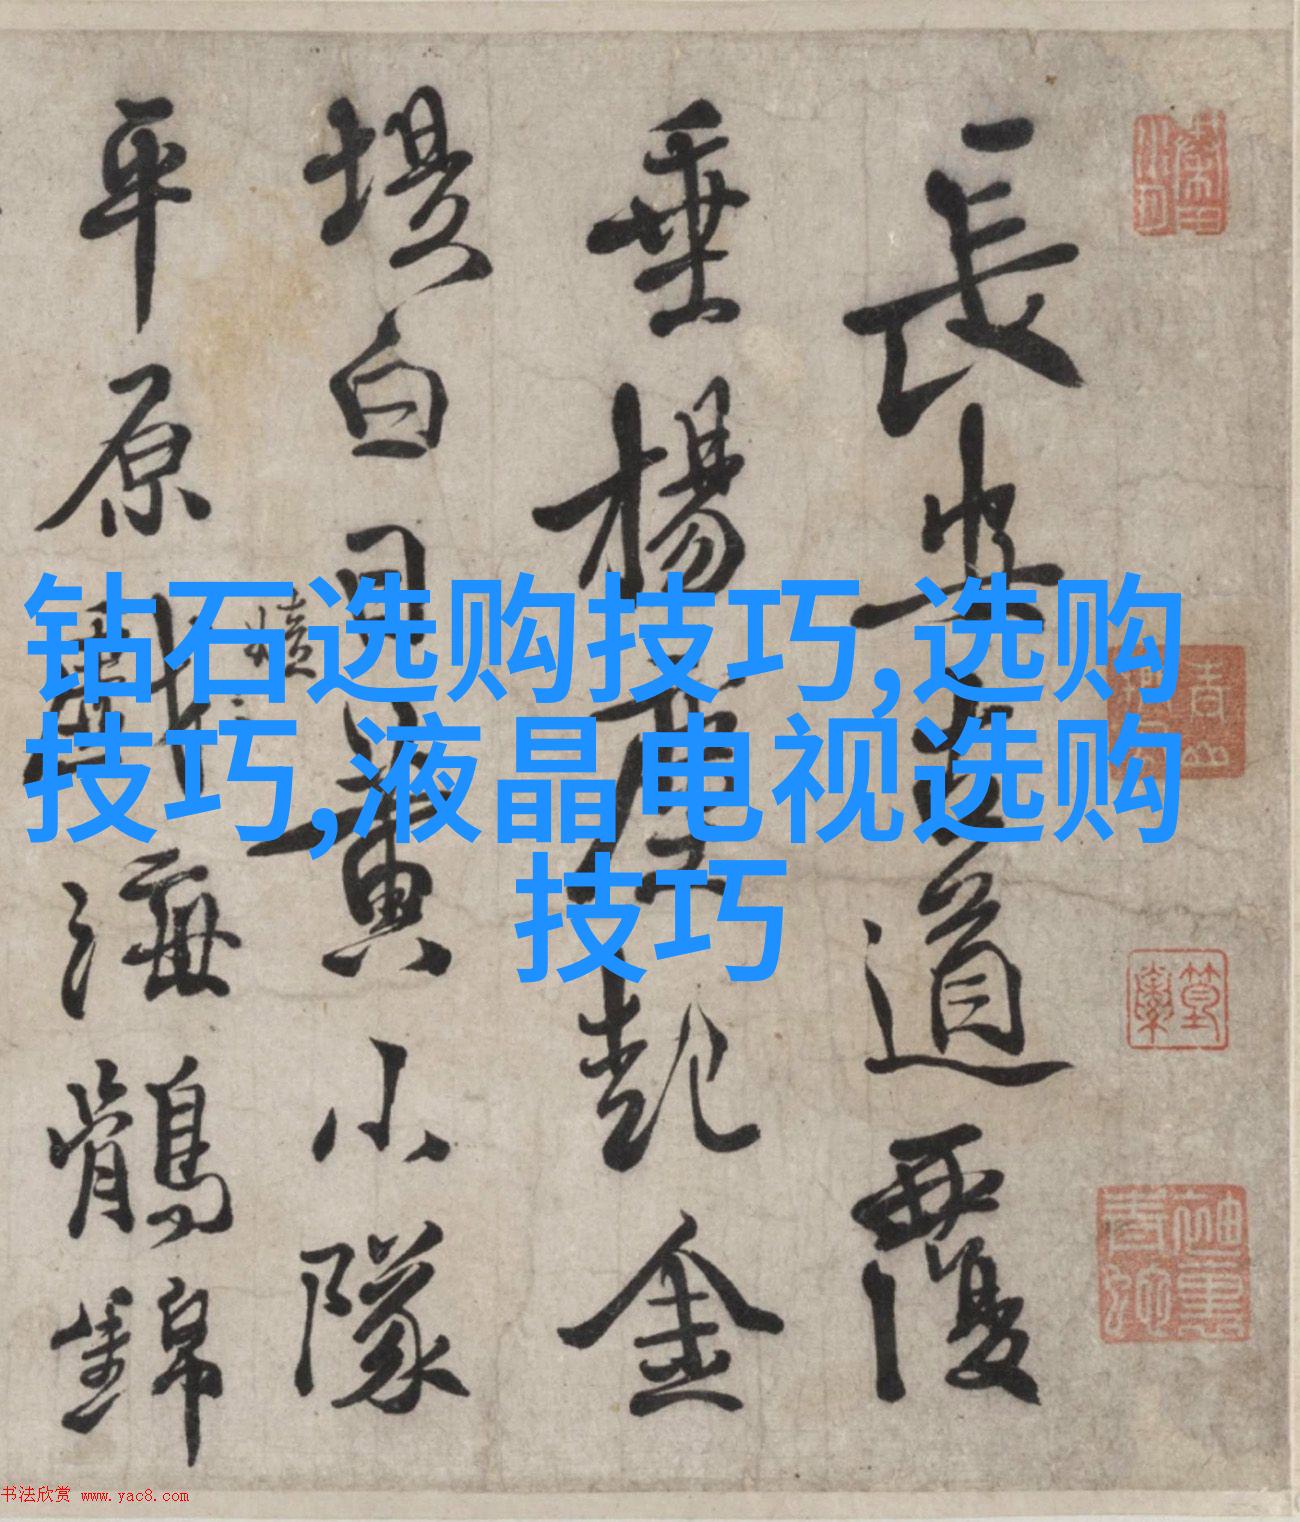 钻石选购技巧,选购
技巧,液晶电视选购
技巧
長安古道覆
垂楊起金
堤白黄小隊
平原海鶻錦
书法欣赏 www.yac8.com